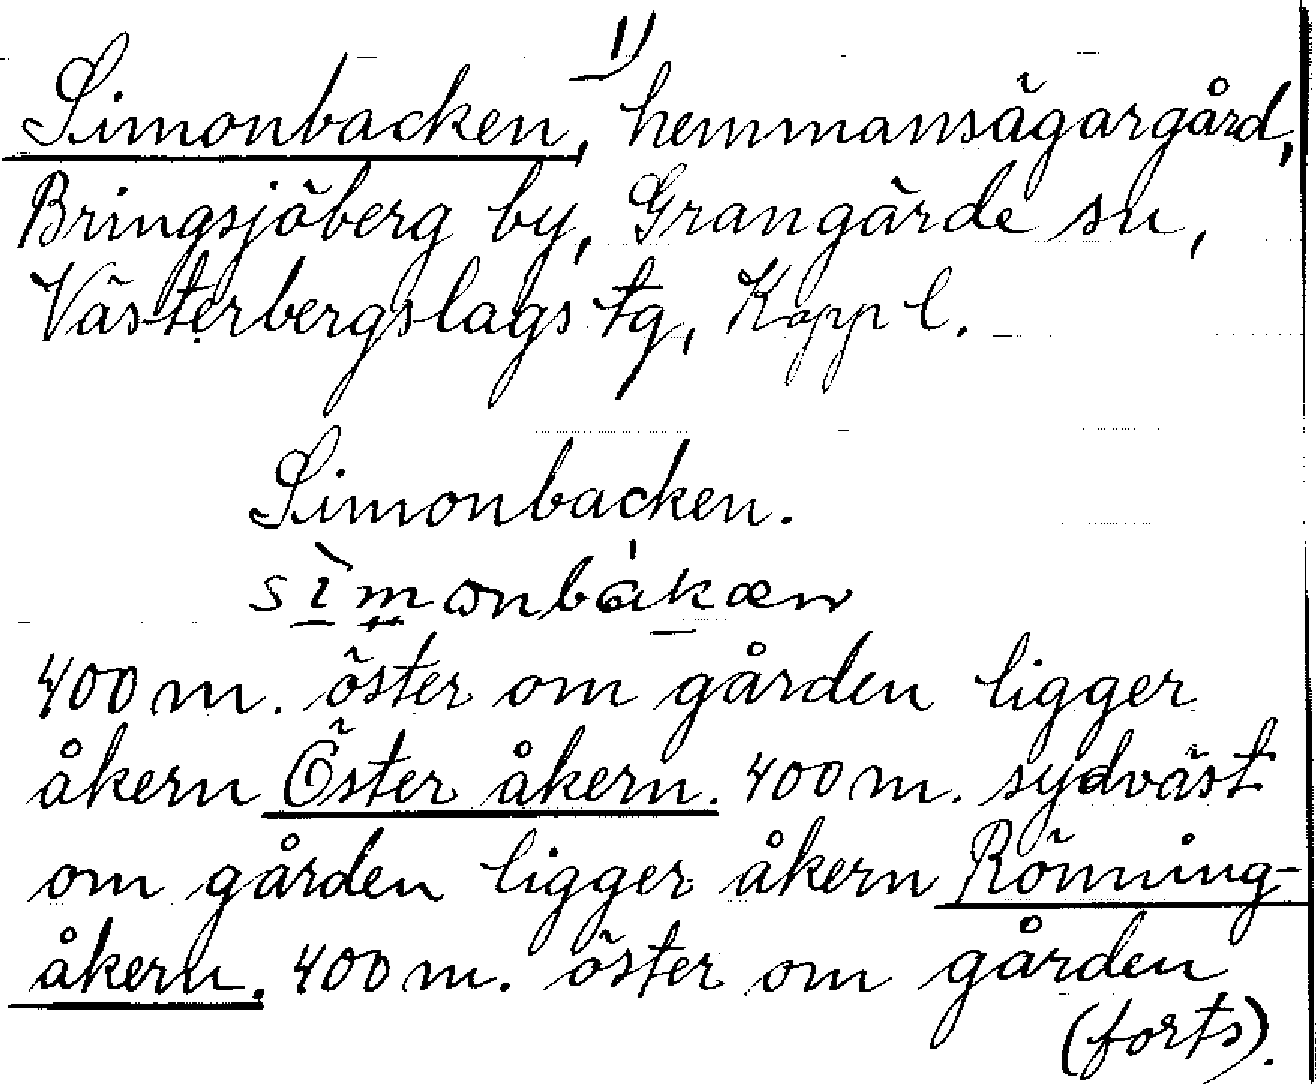 1)
Simonbacken, hemmansägargård,
Bringsjöberg by, Grangärde sn,
Västerbergslags tg, Kopp l.
Simonbacken.
sìmonbákæn
400 m. öster om gården ligger
åkern Öster åkern. 400 m. sydväst
om gården ligger åkern Rönning-
åkern. 400 m. öster om gården
(forts).